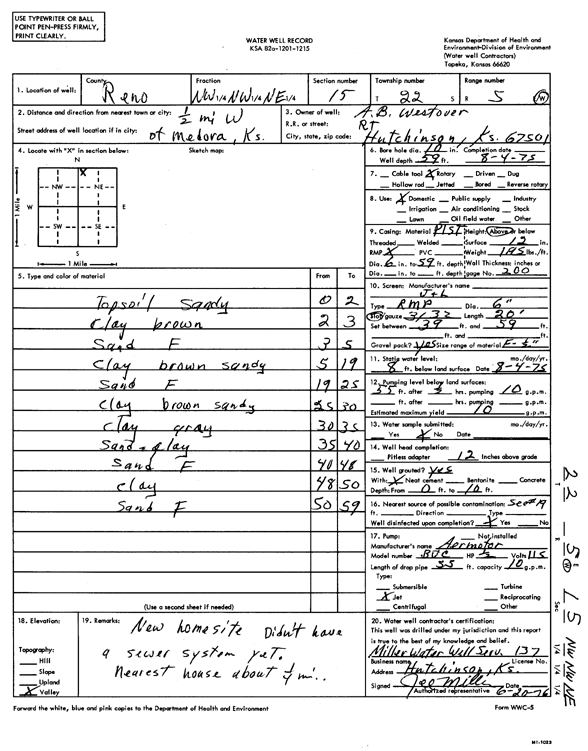 USE TYPEWRITER OR BALL
POINT PEN-PRESS FIRMLY,
PRINT CLEARLY.
WATER WELL RECORD
KSA 82a-1201-1215
Kansas Department of Health and
Environment-Division of Environment
(Water well Contractors)
Topeka, Kansas 66620
1. Location of well:
County Reno
Fraction NW 1/4 NW 1/4 NE 1/4
Section number 15
Township number T 22 S
Range number R 5 E/W
2. Distance and direction from nearest town or city: 1/2 mi W
Street address of well location if in city: of Medora, Ks.
3. Owner of well: A.B. Westover
R.R. or street: RT
City, state, zip code: Hutchinson, Ks. 67501
4. Locate with "X" in section below:
Sketch map:
N
X
NW NE
W E
SW SE
S
1 Mile
1 Mile
6. Bore hole dia. 10 in. Completion date
Well depth 59 ft. 8-4-75
7. Cable tool X Rotary Driven Dug
Hollow rod Jetted Bored Reverse rotary
8. Use: X Domestic Public supply Industry
Irrigation Air conditioning Stock
Lawn Oil field water Other
9. Casing: Material Plst Height: Above or below
Threaded Welded Surface 12 in.
RMP X PVC Weight 195 lbs./ft.
Dia. 6 in. to 59 ft. depth Wall Thickness: inches or
Dia. in. to ft. depth gage No. 200
5. Type and color of material From To
Topsoil Sandy 0 2
Clay brown 2 3
Sand F 3 5
Clay brown sandy 5 19
Sand F 19 25
Clay brown sandy 25 30
Clay gray 30 35
Sand - clay 35 40
Sand F 40 48
Clay 48 50
Sand F 50 59
(Use a second sheet if needed)
10. Screen: Manufacturer's name
J+L
Type RMP Dia. 6"
Slot/gauze 3/32 Length 20'
Set between 39 ft. and 59 ft.
ft. and ft.
Gravel pack? yes Size range of material
11. Static water level: mo./day/yr.
8 ft. below land surface Date 8-4-75
12. Pumping level below land surfaces:
55 ft. after hrs. pumping 10 g.p.m.
ft. after hrs. pumping g.p.m.
Estimated maximum yield 10 g.p.m.
13. Water sample submitted: mo./day/yr.
Yes X No Date
14. Well head completion:
Pitless adapter 12 Inches above grade
15. Well grouted? yes
With: X Neat cement Bentonite Concrete
Depth: From 0 ft. to 10 ft.
16. Nearest source of possible contamination: See #19
ft. Direction Type
Well disinfected upon completion? X Yes No
17. Pump: Not installed
Manufacturer's name Aermotor
Model number HP 1/2 Volts 115
Length of drop pipe 55 ft. capacity 10 g.p.m.
Type:
Submersible Turbine
X Jet Reciprocating
Centrifugal Other
18. Elevation:
Topography:
Hill
Slope
Upland
X Valley
19. Remarks: New homesite Didn't have
a sewer system yet.
Nearest house about 1/4 mi.
20. Water well contractor's certification:
This well was drilled under my jurisdiction and this report
is true to the best of my knowledge and belief.
Miller Water Well Serv. 137
Business name License No.
Address Hutchinson, Ks.
Signed Date 6-20-76
Authorized representative
Forward the white, blue and pink copies to the Department of Health and Environment
Form WWC-5
T 22 R 5 E/W Sec 15 NW 1/4 NW 1/4 NE 1/4